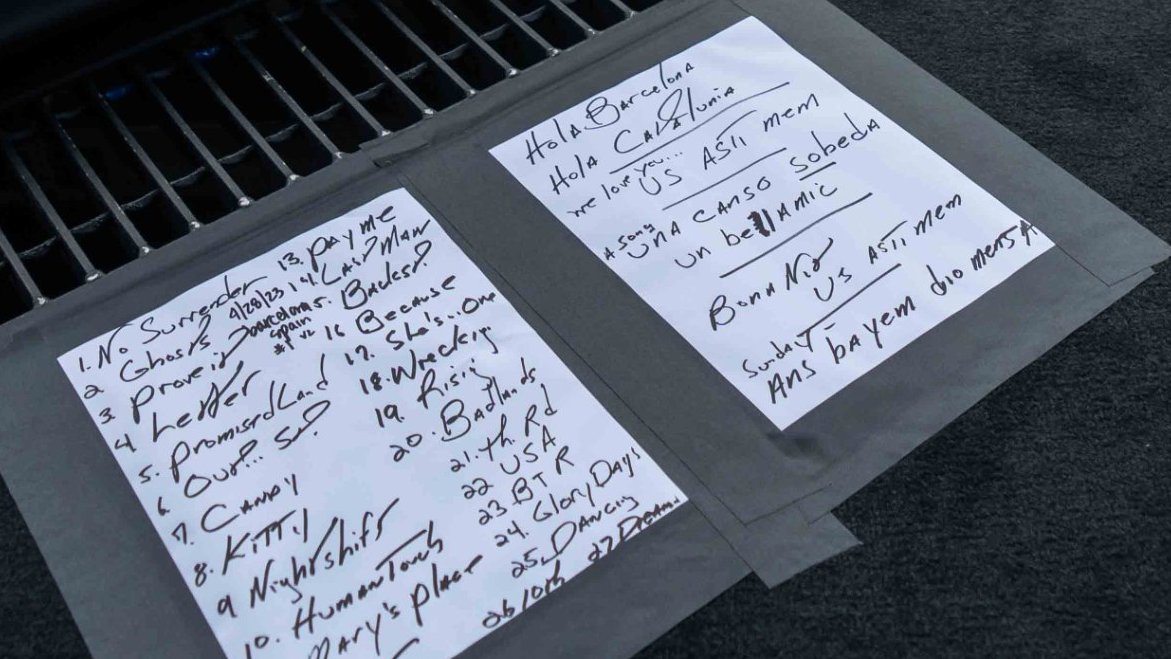 1. No Surrender
2 Ghosts
3 Prove it
4 Letter
5. Promised Land
6
7. Candy
8. Kitty
9 Nightshift
10. Human Touch
Mary's place
4/28/23
Barcelona
Spain
#1 v2
13. Pay me
14. Last Man
5. Backst.
16 Because
17. She's...One
18. Wrecking
19. Rising
20. Badlands
21. Th. Rd
22 USA
23 BTR
24. Glory Days
25. Dancing
26 10th
27 Dream
Hola Barcelona
Hola Catalunia
we love you...
US ASTIMEM
A song
UNA CANSO Sobeda
un bell AMIC
BONA Nit
US ASTIMEM
Sunday
Ans bayem dio mensA